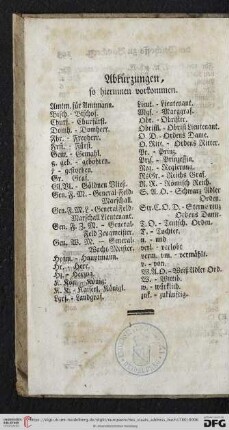 Abkürzungen,
so hierinnen vorkommen.
Amtm. für Amtmann.
Bisch. - Bischof.
Churf. - Churfürst.
Domh. - Domherr.
Fhr. - Freyherr.
Frst. - Fürst.
Gem. - Gemahl.
g. geb. - gebohren.
g. - gestorben.
Gr. - Graf.
Gl. Vl. - Güldnen Vließ.
Gen. F. M. - General-Feld-
Marschall.
Gen. F. M. L. - General Feld-
Marschal Lieutenant.
Gen. F. Z. M. - General-
Feld Zeugmeister.
Gen. W. M. - General-
Wacht-Meister.
Hptm. - Hauptmann.
Hr. - Herr.
Hz. - Herzog.
K. Kön. - König.
K. K. - Kaiserl. Königl.
Ldgr. - Landgraf.
Lieut. - Lieutenant.
Mgf. - Marggraf.
Obr. - Obrister.
Obristl. - Obrist Lieutenant.
O. D. - Ordens Dame.
O. Ritt. - Ordens Ritter.
Pr. - Prinz.
Prß. - Prinzessin.
Reg. - Regierung.
R. R. - Römisch Reich.
Orden.
Ordens Dame.
T. O. - Teutsch. Orden.
T. - Tochter.
u. - und
verl. - verlobt
verm. vm. - vermählt.
v. - von.
W. - Wittib.
w. - würklich.
zuk. - zukünftig.
DFG